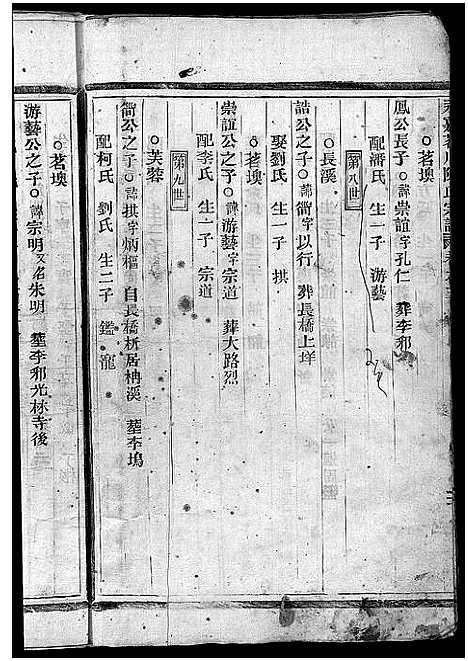 ○茗墺
鳳公長子○諱崇誼字孔仁 葬李邪
配潘氏 生一子 游藝
第八世
○長溪
誥公之子○諱衙字以行 葬長橋上垟
娶劉氏 生一子 拱
○茗墺
崇誼公之子○諱游藝字宗道 葬大路烈
配李氏 生一子 宗道
第九世
○芙蓉
衙公之子○諱拱字炳樞 自長橋析居枬溪 塟李塢
配柯氏 劉氏 生二子 鑑 寵
○茗墺
游藝公之子○諱宗明又名朱明 塟李邪光林寺後